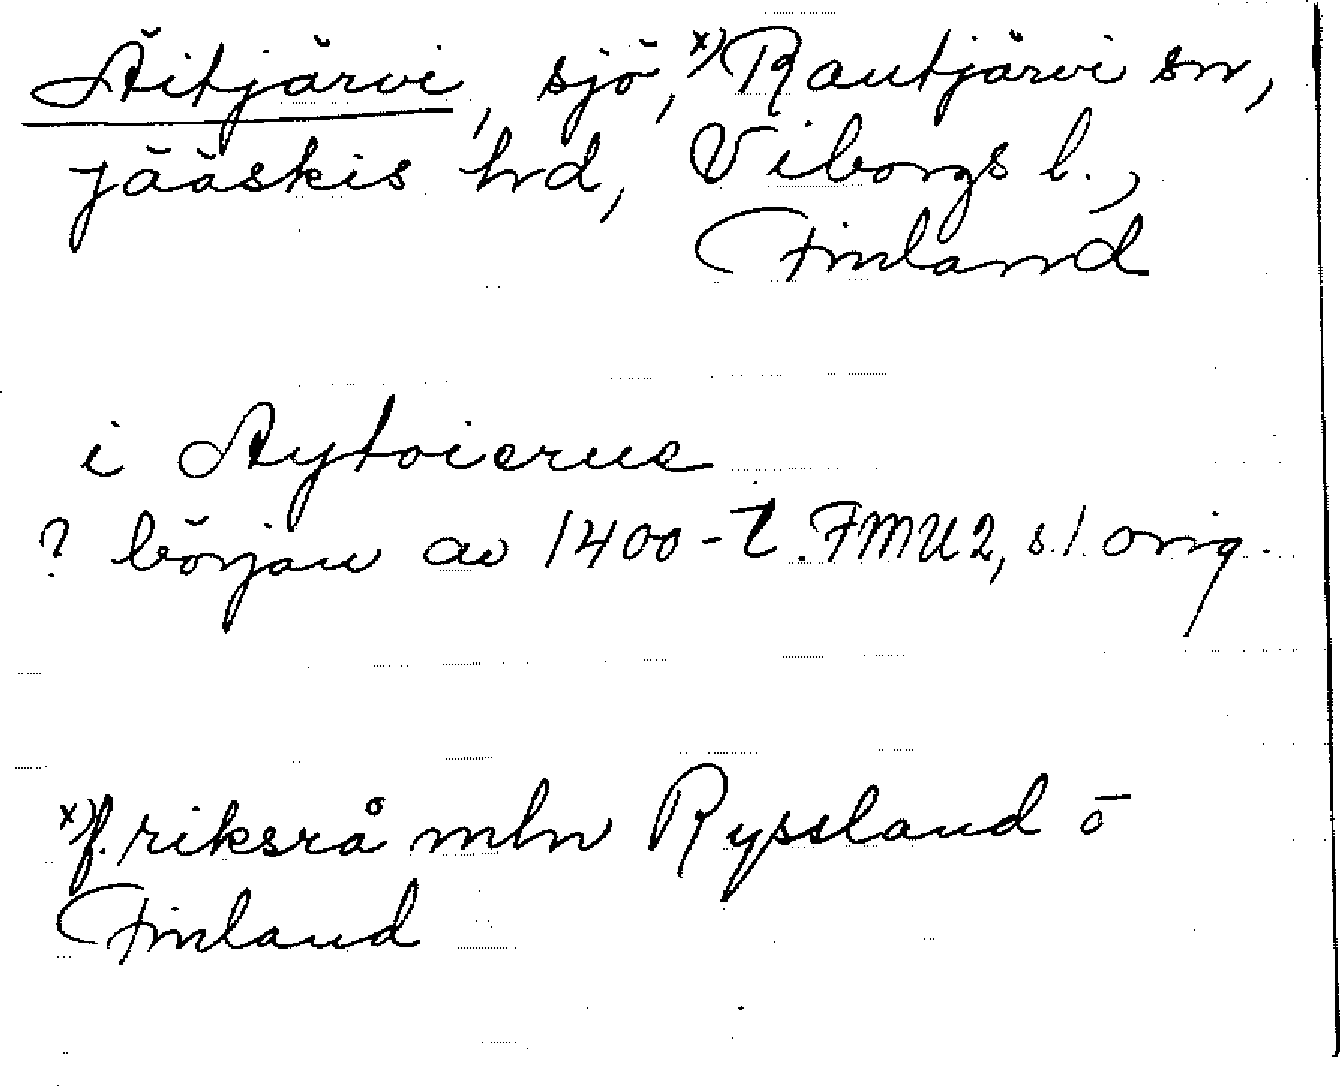 Äitjärvi, sjö, x) Rautjärvi sn,
Jääskis hrd, Viborgs l.,
Finland
i Aytoierue
? början av 1400-t. FMU2, s.1 orig.
x) f. riksrå mln Ryssland o
Finland